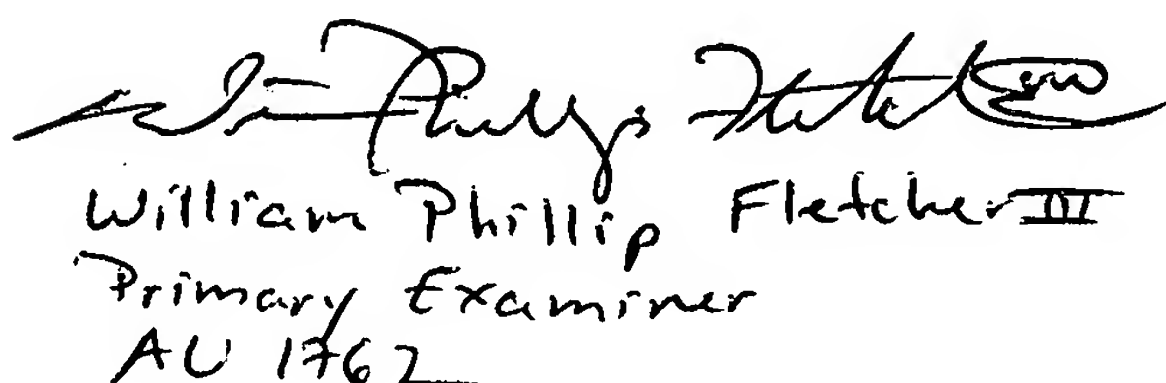 William Phillip Fletcher III
Primary Examiner
AU 1762